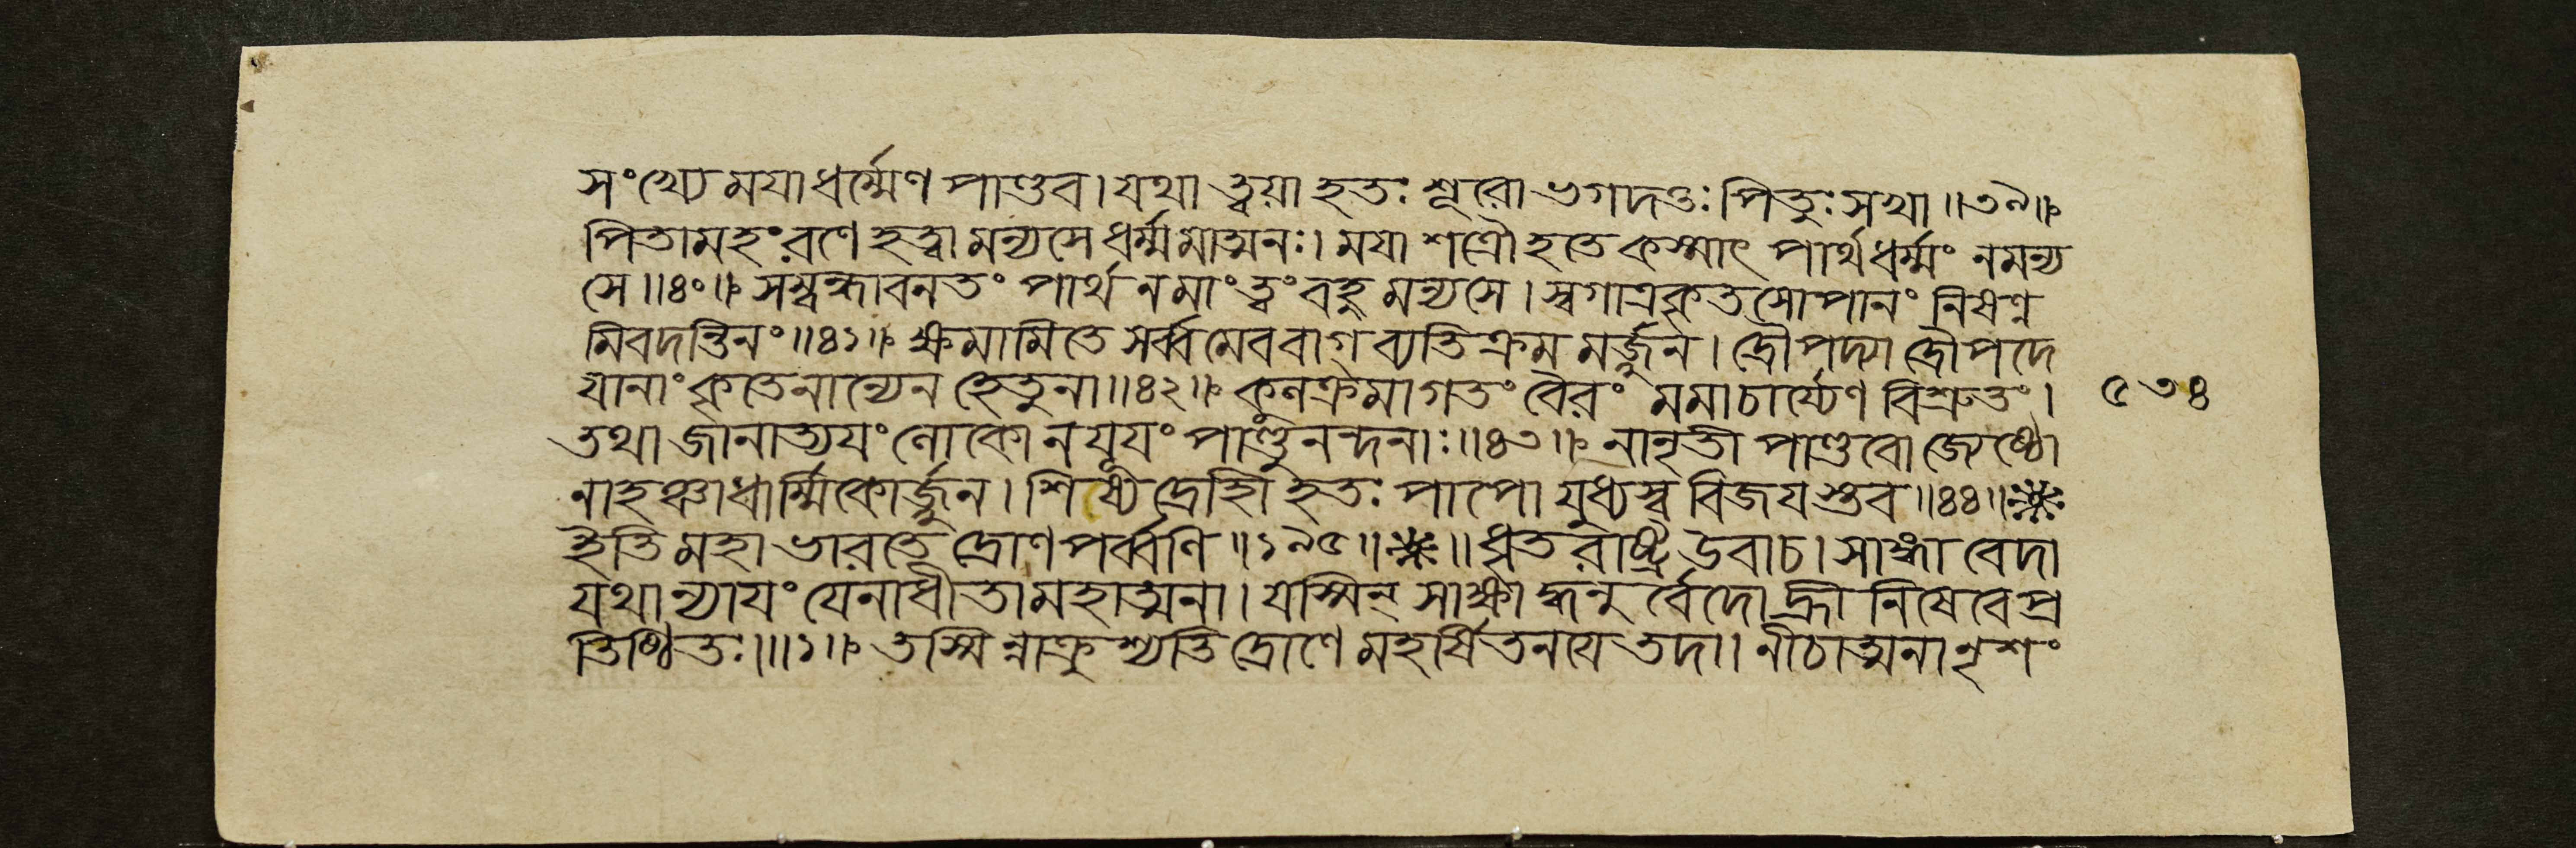 সংখ্যে ময়া ধর্ম্মেণ পাণ্ডব। যথা ত্বয়া হতঃ শূরো ভগদত্তঃ পিতুঃ সখা॥৩৯॥
পিতামহং রণে হত্বা মন্যসে ধর্ম্মমাত্মনঃ। ময়া শত্রৌ হতে কস্মাৎ পার্থ ধর্ম্মং ন মন্য
সে॥৪০॥ সম্বন্ধাবনতং পার্থ ন মাং ত্বং বহু মন্যসে। স্বগাত্রকৃতসোপানং নিষণ্ন
মিব দন্তিনং॥৪১॥ ক্ষমামি তে সর্ব্বমেব বাগ্ব্যতিক্রমমর্জ্জুন। দ্রৌপদ্যা দ্রৌপদে
য়ানাং কৃতে নান্যেন হেতুনা॥৪২॥ কুলক্রমাগতং বৈরং মমাচার্য্যেণ বিশ্রুতং।
তথা জানাত্যয়ং লোকো ন যূয়ং পাণ্ডুনন্দনাঃ॥৪৩॥ নানৃতী পাণ্ডবো জ্যেষ্ঠো
নাহঞ্চাধার্ম্মিকোর্জ্জুন। শিষ্যদ্রোহী হতঃ পাপো যুধ্যস্ব বিজয়স্তব॥৪৪॥
ইতি মহাভারতে দ্রোণপর্ব্বণি॥১৯৫॥ ধৃতরাষ্ট্র উবাচ। সাঙ্গা বেদা
যথান্যায়ং যেনাধীতা মহাত্মনা। যস্মিন্ সাক্ষাদ্ধনুর্ব্বেদো হ্রীনিষেবে প্র
তিষ্ঠিতঃ॥১॥ তস্মিন্নাক্রুশ্যতি দ্রোণে মহর্ষিতনয়ে তদা। নীচাত্মনা নৃশং
৫৩৪